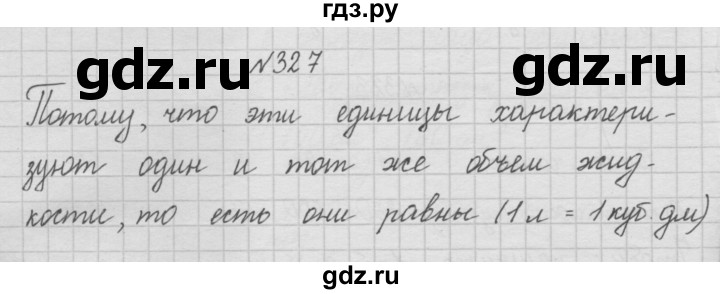 гдз.ру
gdz.ru
gdz.ru
№327
Потому, что эти единицы характери-
зуют один и тот же объем жид-
кости, то есть они равны (1л = 1 куб. дм)
gdz.ru